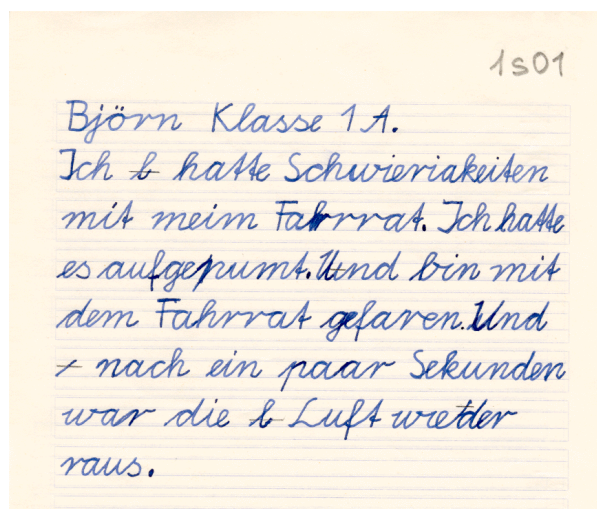 1s01
Björn Klasse 1A.
Ich hatte Schwieriakeiten
mit meim Fahrrat. Ich hatte
es aufgepumt. Und bin mit
dem Fahrrat gefaren. Und
nach ein paar Sekunden
war die Luft wieder
raus.